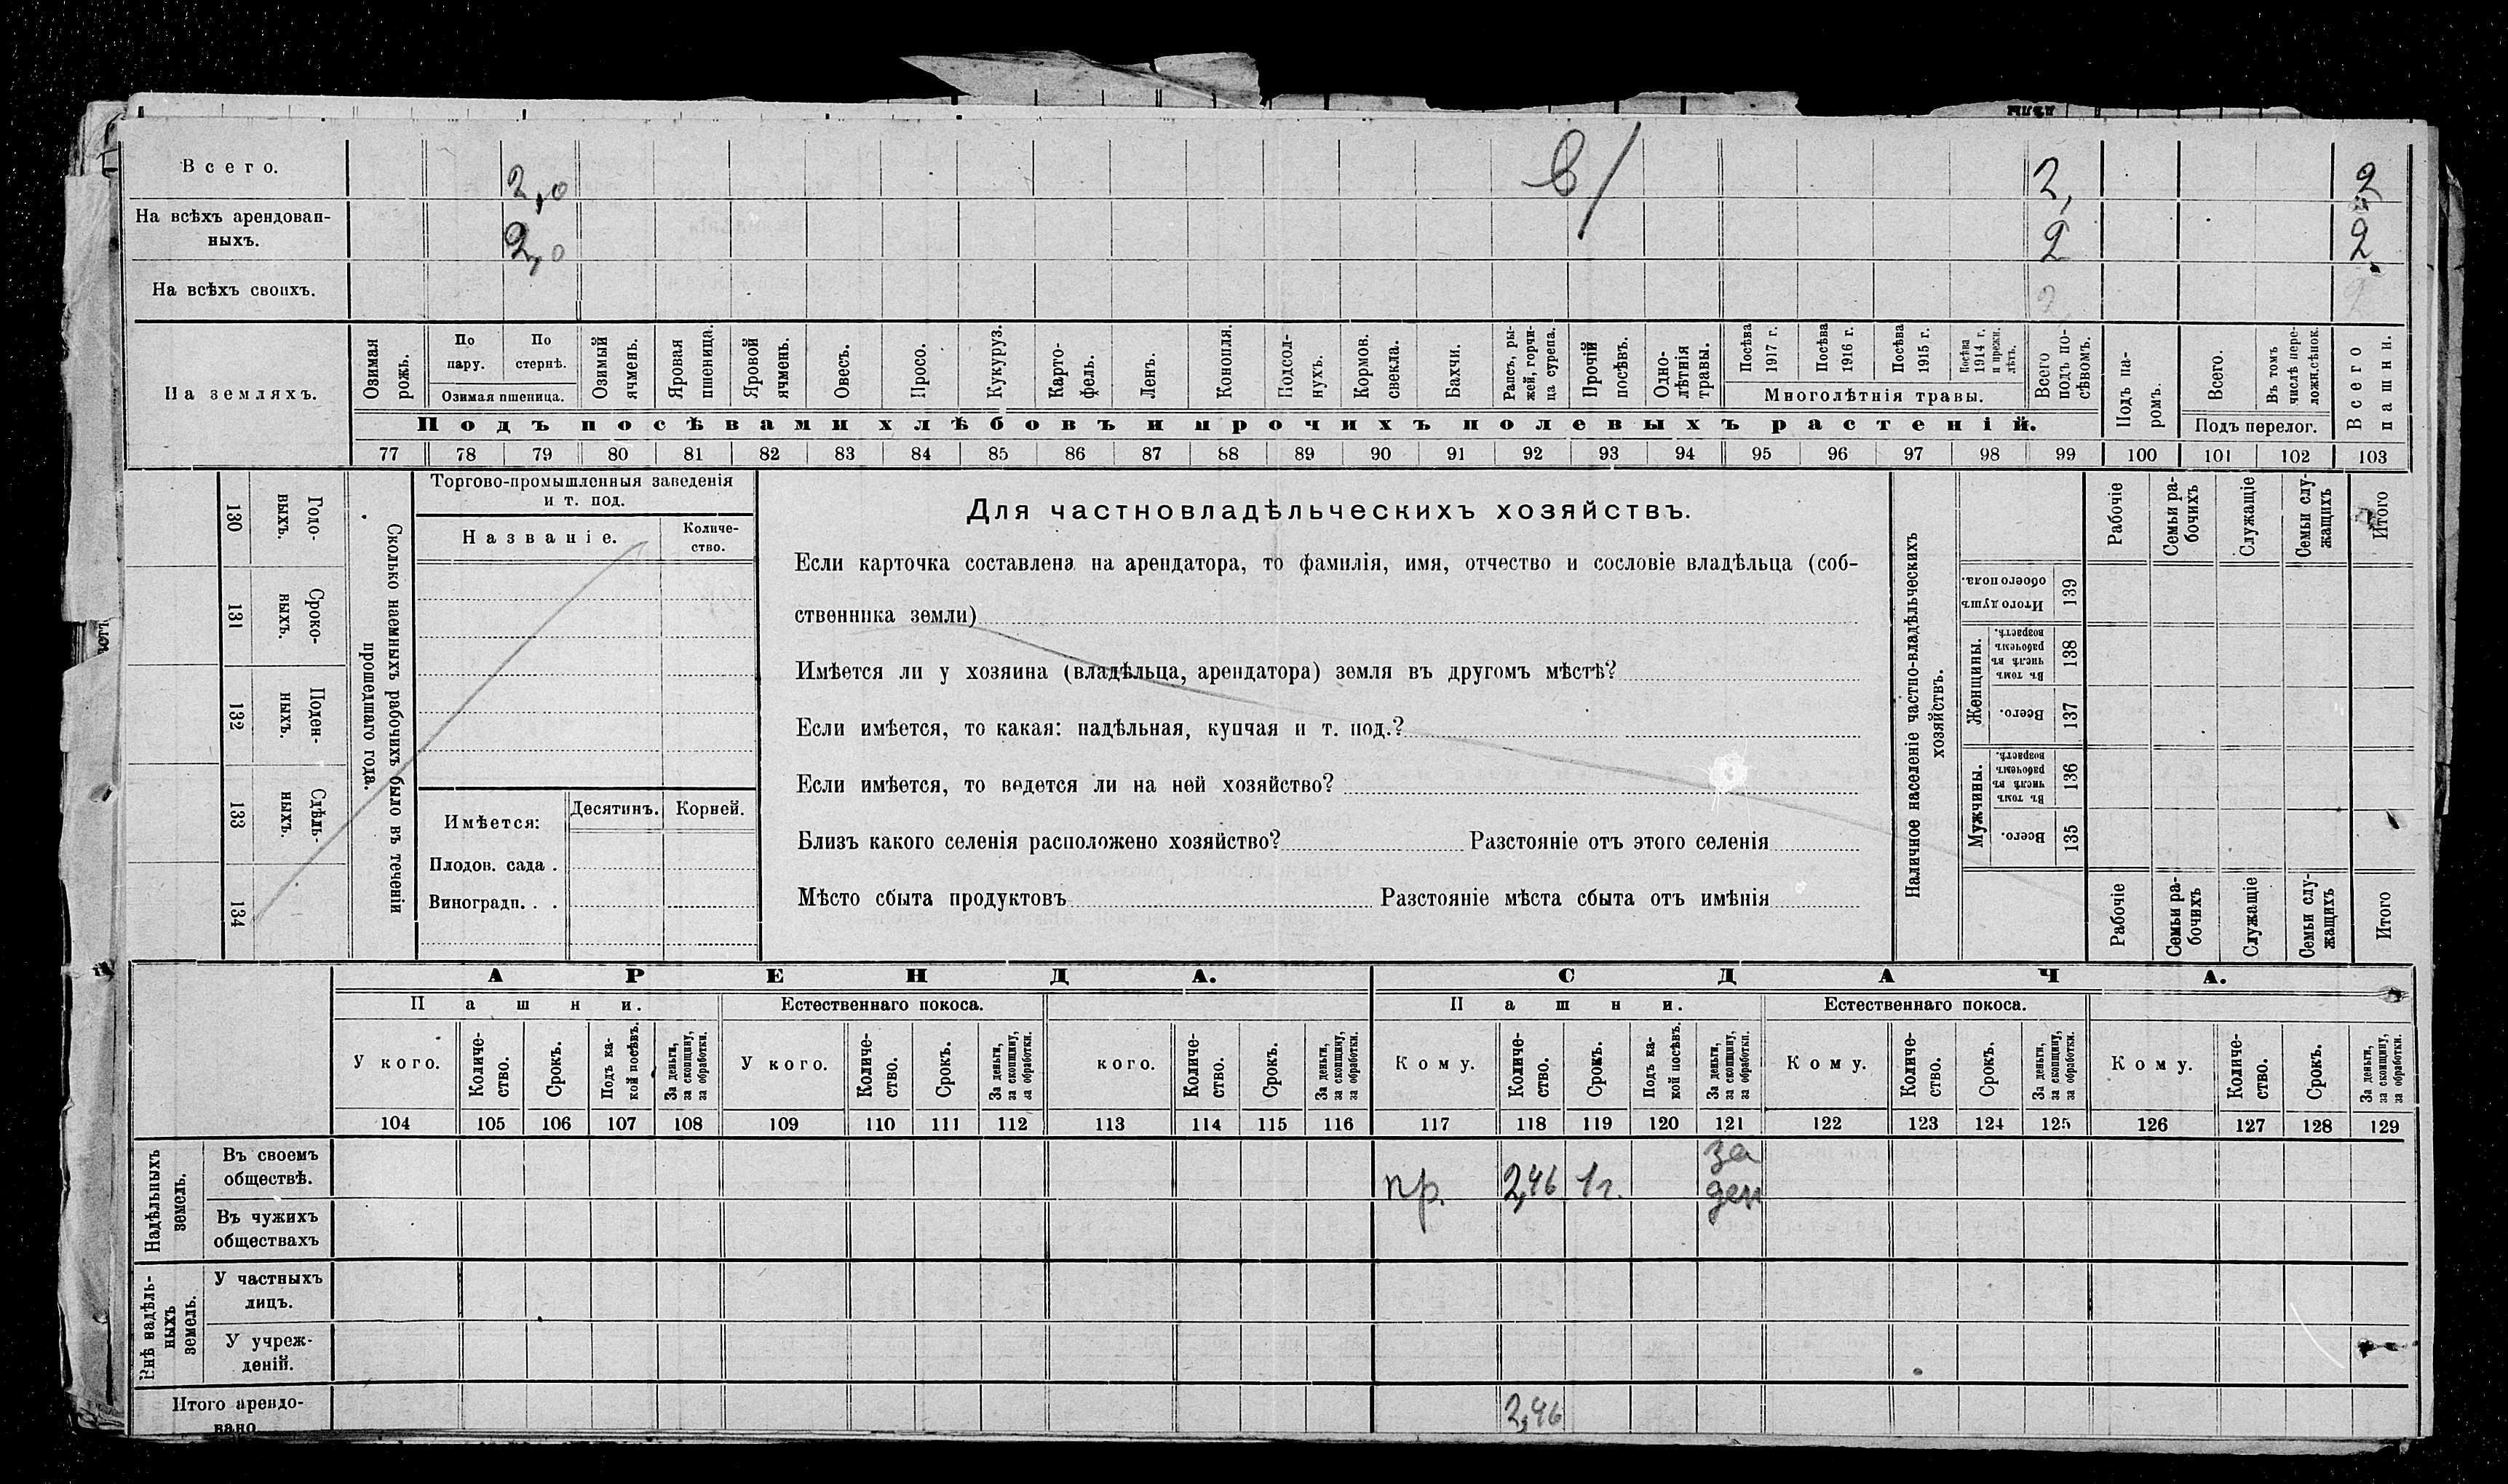 Всего. 2,0 в/ 2, 2
На всѣхъ арендован-
ныхъ. 2,0 2 2
На всѣхъ своихъ. 2 2
На земляхъ.
Озимая рожь.
По пару.
По стернѣ.
Озимая пшеница.
Озимый ячмень.
Яровая пшеница.
Яровой ячмень.
Овесъ.
Просо.
Кукуруз.
Карто-
фель.
Ленъ.
Конопля.
Подсол-
нухъ.
Кормов.
свекла.
Бахчи.
Рапсъ, ры-
жей, горчи-
ца сурепа.
Прочій
посѣвъ.
Одно-
лѣтнія
травы.
Посѣва
1917 г.
Посѣва
1916 г.
Посѣва
1915 г.
Посѣва
1914 г.
и прежн.
лѣтъ.
Многолѣтнія травы.
Всего
подъ по-
сѣвомъ.
Подъ па-
ромъ.
Всего.
Въ томъ
числѣ пере-
ложн.сѣнок.
Подъ перелог.
Всего
пашни.
Подъ посѣвами хлѣбовъ и прочихъ полевыхъ растеній.
77 78 79 80 81 82 83 84 85 86 87 88 89 90 91 92 93 94 95 96 97 98 99 100 101 102 103
130 Годо-
выхъ.
131 Сроко-
выхъ.
132 Поден-
ныхъ.
133 Сдѣль-
ныхъ.
134
Сколько наемныхъ рабочихъ было въ теченіи
прошедшаго года.
Торгово-промышленныя заведенія
и т. под.
Названіе.
Количе-
ство.
Имѣется:
Десятинъ. Корней.
Плодов. сада .
Виноградн. . .
Для частновладѣльческихъ хозяйствъ.
Если карточка составлена на арендатора, то фамилія, имя, отчество и сословіе владѣльца (соб-
ственника земли)
Имѣется ли у хозяина (владѣльца, арендатора) земля въ другомъ мѣстѣ?
Если имѣется, то какая: надѣльная, купчая и т. под.?
Если имѣется, то ведется ли на ней хозяйство?
Близъ какого селенія расположено хозяйство? Разстояніе отъ этого селенія
Мѣсто сбыта продуктовъ Разстояніе мѣста сбыта отъ имѣнія
Наличное населеніе частно-владѣльческихъ
хозяйствъ.
Рабочіе
Семьи ра-
бочихъ
Служащіе
Семьи слу-
жащихъ
Итого
Итого душъ
обоего пола.
139
Женщины.
Въ томъ
числѣ въ
рабочемъ
возрастѣ.
138
Всего.
137
Мужчины.
Въ томъ
числѣ въ
рабочемъ
возрастѣ.
136
Всего.
135
Рабочіе
Семьи ра-
бочихъ
Служащіе
Семьи слу-
жащихъ
Итого
АРЕНДА. СДАЧА.
Пашни. Естественнаго покоса. Пашни. Естественнаго покоса.
У кого.
Количе-
ство.
Срокъ.
Подъ ка-
кой посѣвъ.
За деньги,
за скопщину,
за обработки.
У кого.
Количе-
ство.
Срокъ.
За деньги,
за скопщину,
за обработки.
кого.
Количе-
ство.
Срокъ.
За деньги,
за скопщину,
за обработки.
Кому.
Количе-
ство.
Срокъ.
Подъ ка-
кой посѣвъ.
За деньги,
за скопщину,
за обработки.
Кому.
Количе-
ство.
Срокъ.
За деньги,
за скопщину,
за обработки.
Кому.
Количе-
ство.
Срокъ.
За деньги,
за скопщину,
за обработки.
104 105 106 107 108 109 110 111 112 113 114 115 116 117 118 119 120 121 122 123 124 125 126 127 128 129
Надѣльныхъ
земель.
Въ своемъ
обществѣ. пр. 2,46 1г. за
ден
Въ чужихъ
обществахъ
Внѣ надѣль-
ныхъ
земель.
У частныхъ
лицъ.
У учреж-
деній.
Итого арендо-
вано 2,46